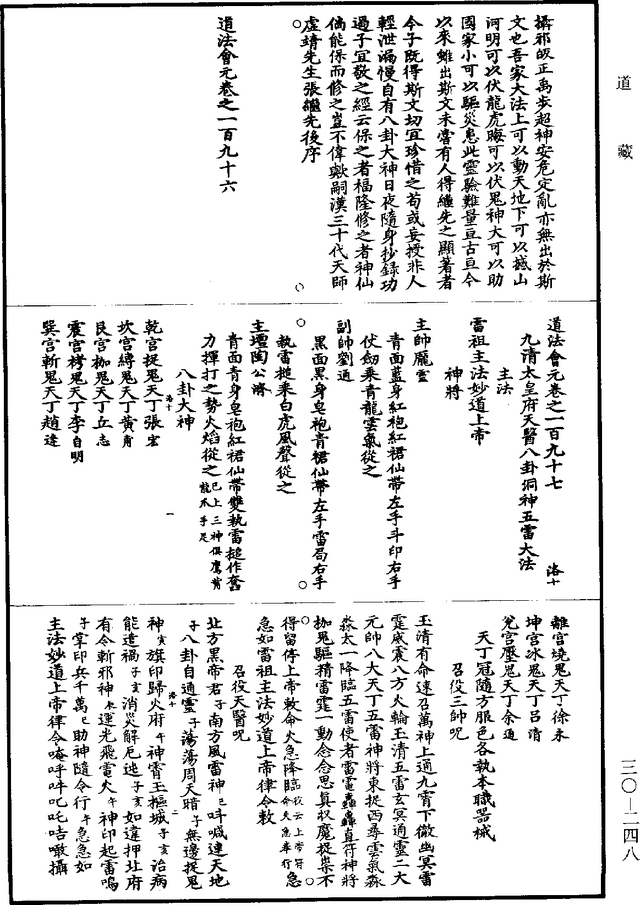 道藏
攝邪皈正禹步超神安危定亂亦無出於斯
文也吾家大法上可以動天地下可以撼山
河明可以伏龍虎晦可以伏鬼神大可以助
國家小可以驅災患此靈驗難量亘古亘今
以來雖出斯文未嘗有人得繼先之顯著者
今子既得斯文切宜珍惜之苟或妄授非人
輕泄漏慢自有八卦大神日夜隨身抄錄功
過子宜敬之經云保之者福隆修之者神仙
倘能保而修之豈不偉歟嗣漢三十代天師
虛靖先生張繼先後序
道法會元卷之一百九十六
道法會元卷之一百九十七 洛十
九清太皇府天醫八卦洞神五雷大法
主法
雷祖主法妙道上帝
神將
主帥龐靈
青面藍身紅袍紅裙仙帶左手斗印右手
仗劒乘青龍雲氣從之
副帥劉通
黑面黑身皂袍青裙仙帶左手雷局右手
執雷槌乘白虎風聲從之
主壇陶公濟
青面青身皂袍紅裙仙帶雙執雷槌作奮
力揮打之勢火焰從之已上三神俱鷹觜龍爪手足
八卦大神
乾宮捉鬼天丁張宏
坎宮縛鬼天丁黄甫
艮宮枷鬼天丁丘志
震宮拷鬼天丁李自明
巽宮斬鬼天丁趙逵
洛十 一
離宮燒鬼天丁徐永
坤宮冰鬼天丁呂清
兌宮壓鬼天丁余通
天丁冠隨方服色各執本職器械
召役三帥呪
玉清有命速召萬神上通九霄下徹幽冥雷
霆威震八方火輪玉清五雷玄冥通靈二大
元帥八大天丁五雷神將東捉西尋雲氣淼
淼太一降臨五雷使者雷電轟轟直符神將
枷鬼驅精雷霆一動念念思真収魔捉祟不
得留停上帝敕命火急降臨收云上帝符命火急奉行急
急如雷祖主法妙道上帝律令敕
召役天醫呪
北方黑帝君子南方風雷神巳叫喊連天地
子八卦自通靈子蕩蕩周天暗子無邊捉鬼
神亥旗印歸火府午神霄玉樞城子亥治病
能遣禍子亥消災解厄迍子亥如違押北府
有令斬邪神辰運光飛電火午神印起雷鳴
子掌印兵千萬巳助神隨令行午急急如
主法妙道上帝律令唵呼吽吃吒咭㘕攝
洛十 二
三〇—二四八